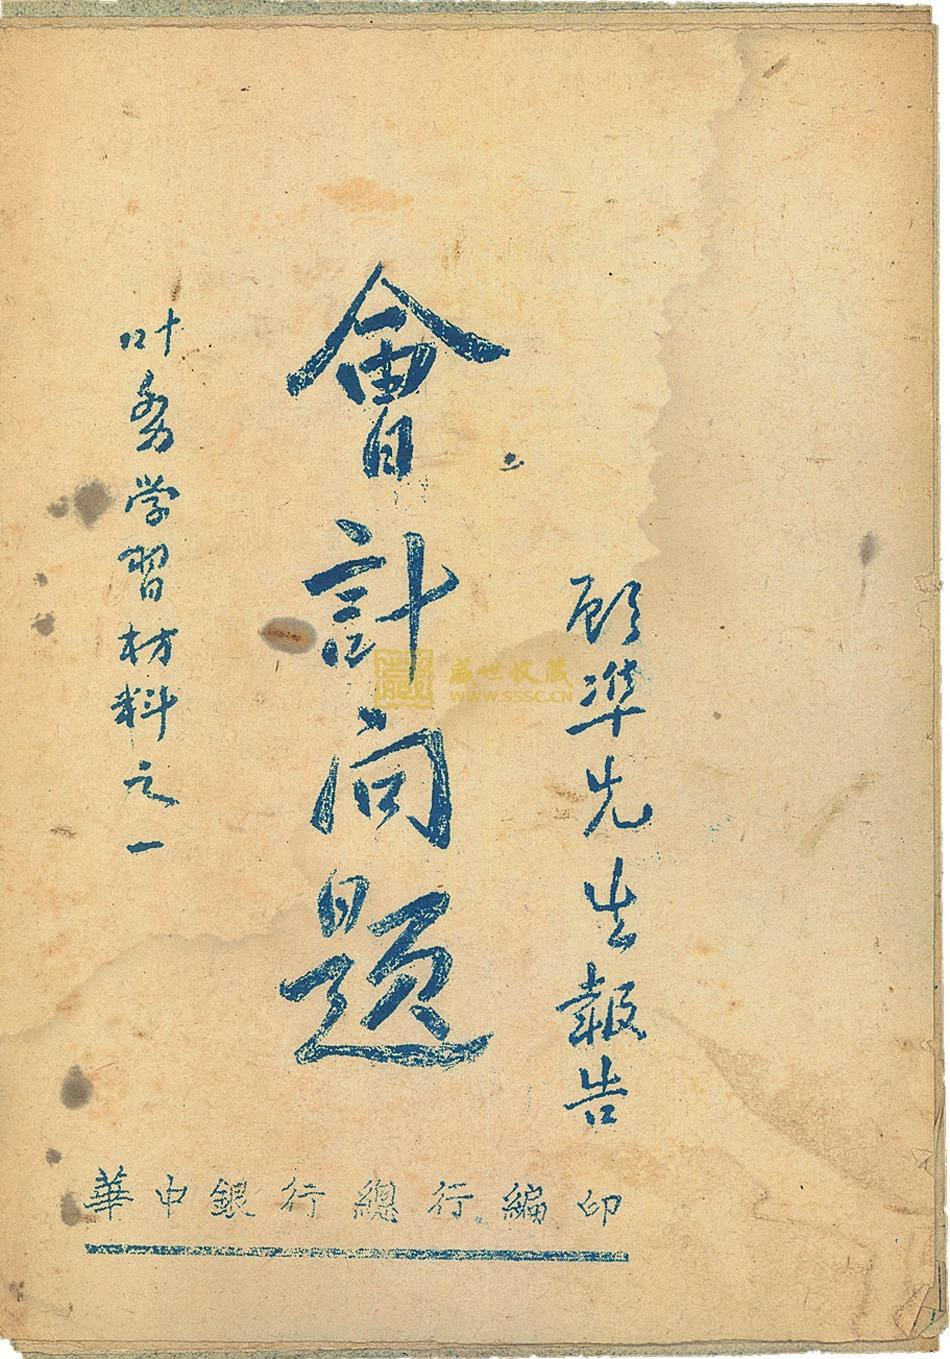 顾準先生報告
會計问题
叶务学習材料之一
華中銀行總行編印
盛世收藏
WWW.SSSC.CN